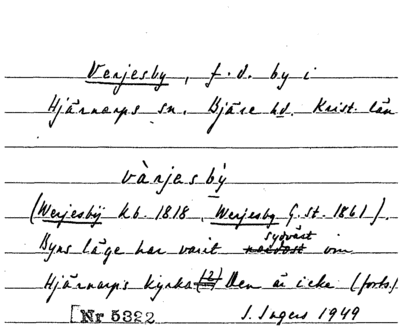 Verjesby, f.d. by i
Hjärnarps sn. Bjäre hd. Krist. län
vàrjasby̆
(Werjesbÿ kb. 1818, Werjesby G. st. 1861).
sydväst
Byns läge har varit nordost om
Hjärnarps kyrka (?) Den är icke (forts.)
[Nr 5322 S. Ingers 1949